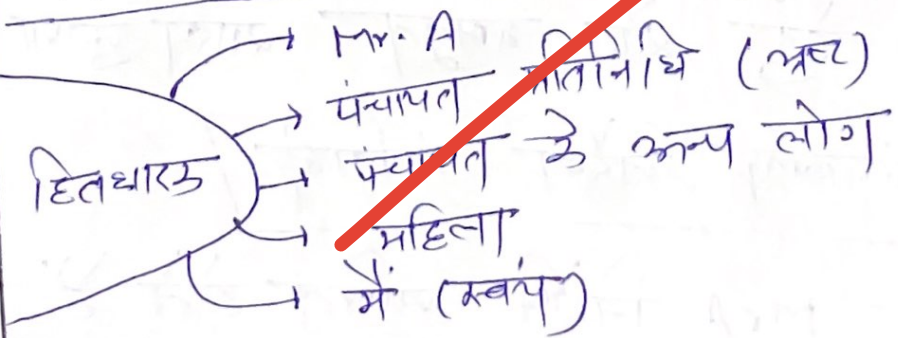 हितधारक
Mr. A
पंचायत प्रतिनिधि (भ्रष्ट)
पंचायत के अन्य लोग
महिला
मैं (स्वंय)